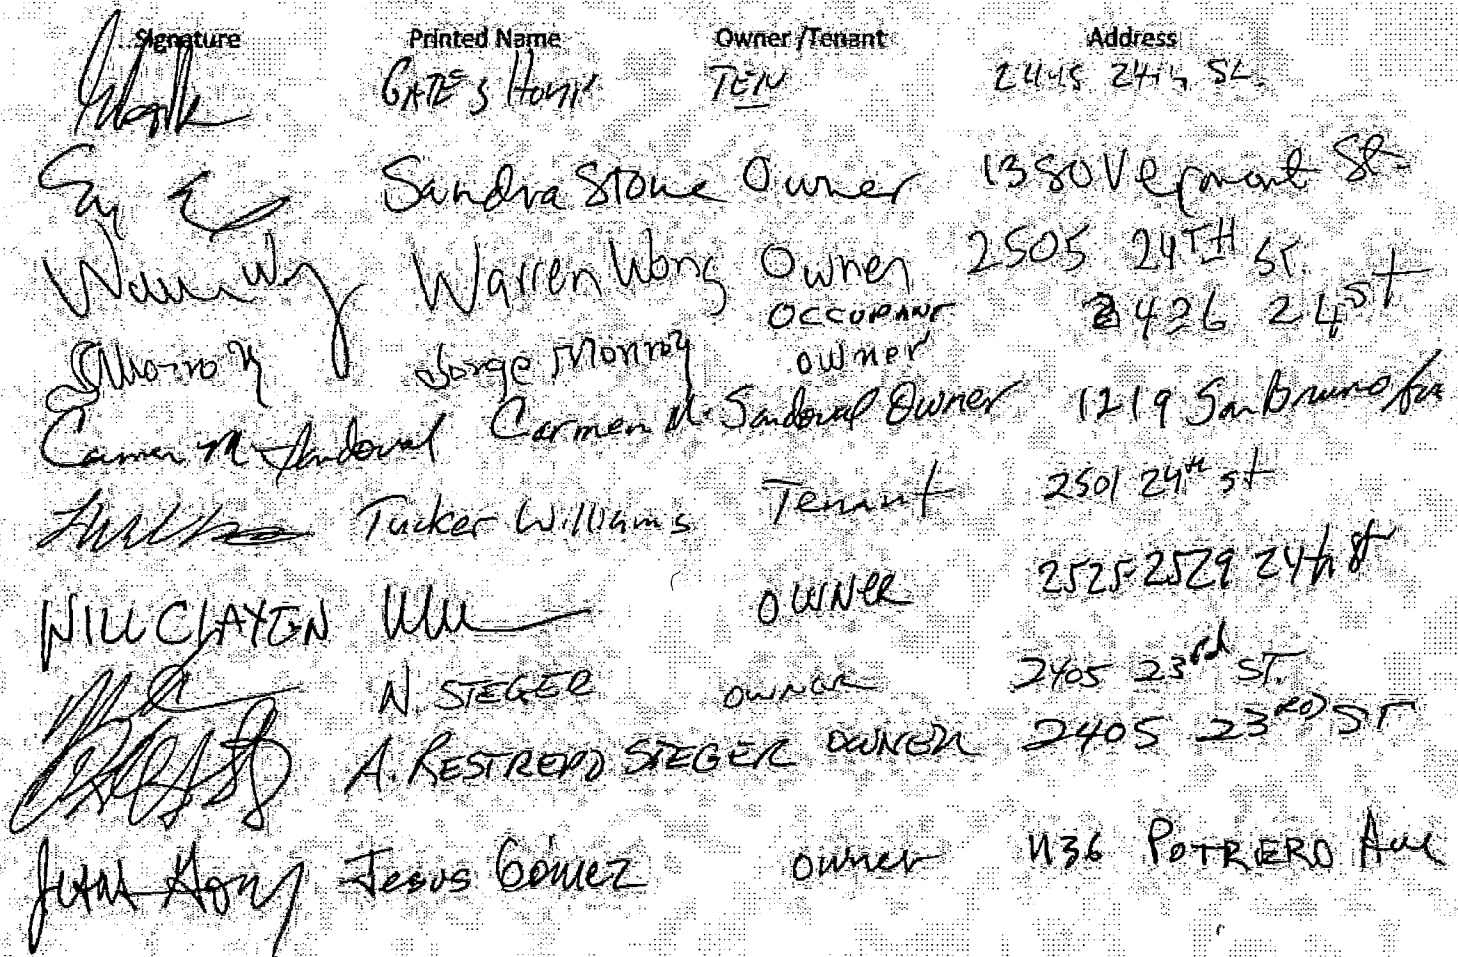 Signature Printed Name Owner /Tenant Address
GATES TEN 2445 24th St.
Sandra Stone Owner 1350 Vermont St.
Warren Wong Owner 2505 24TH ST.
Jorge Monroy OCCUPANT OWNER 2426 24 st
Carmen M. Sandoval Carmen M. Sandoval Owner 1219 San Bruno Ave
Tucker Williams Tenant 2501 24th st
WILL CLAYTEN OWNER 2525-2529 24th St
N. STEGER OWNER 2405 23rd ST.
A. RESTREPO STEGER OWNER 2405 23RD ST
Jesus Gómez owner 1136 POTRERO Ave